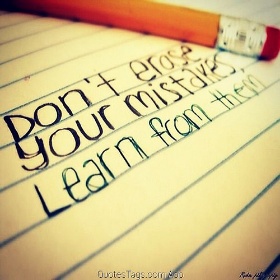 Don't erase
your mistakes
Learn from them
QuotesTags.com App